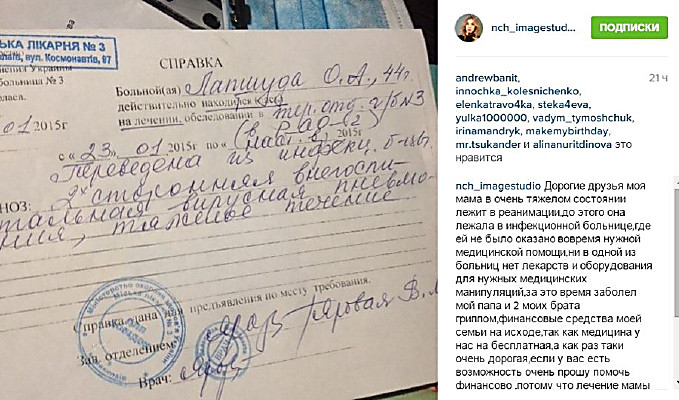 ЬКА ЛІКАРНЯ № 3
вул. Космонавтів, 97
нения Украины
больница № 3
лаева.
01 2015г
СПРАВКА
Больной(ая) Лапшуда О.А., 44г.
действительно находится
на лечении, обследовании в тер. отд. г/б N3
с « 23 » 01 2015г по « 2015г
Переведена из инфекц. б-цы.
НОЗ: 2х сторонняя внегоспи-
тальная вирусная пневмо-
ния, тяжелое течение
Справка дана для предъявления по месту требования.
Зав. отделением
Яровая В.
Врач:
nch_imagestud...
ПОДПИСКИ
andrewbanit, 21 ч
innochka_kolesnichenko,
elenkatravo4ka, steka4eva,
yulka1000000, vadym_tymoshchuk,
irinamandryk, makemybirthday,
mr.tsukander и alinanuritdinova это
нравится
nch_imagestudio Дорогие друзья моя
мама в очень тяжелом состоянии
лежит в реанимации,до этого она
лежала в инфекционной больнице,где
ей не было оказано вовремя нужной
медицинской помощи,ни в одной из
больниц нет лекарств и оборудования
для нужных медицинских
манипуляций,за это время заболел
мой папа и 2 моих брата
гриппом,финансовые средства моей
семьи на исходе,так как медицина у
нас на бесплатная,а как раз таки
очень дорогая,если у вас есть
возможность очень прошу помочь
финансово ,потому что лечение мамы